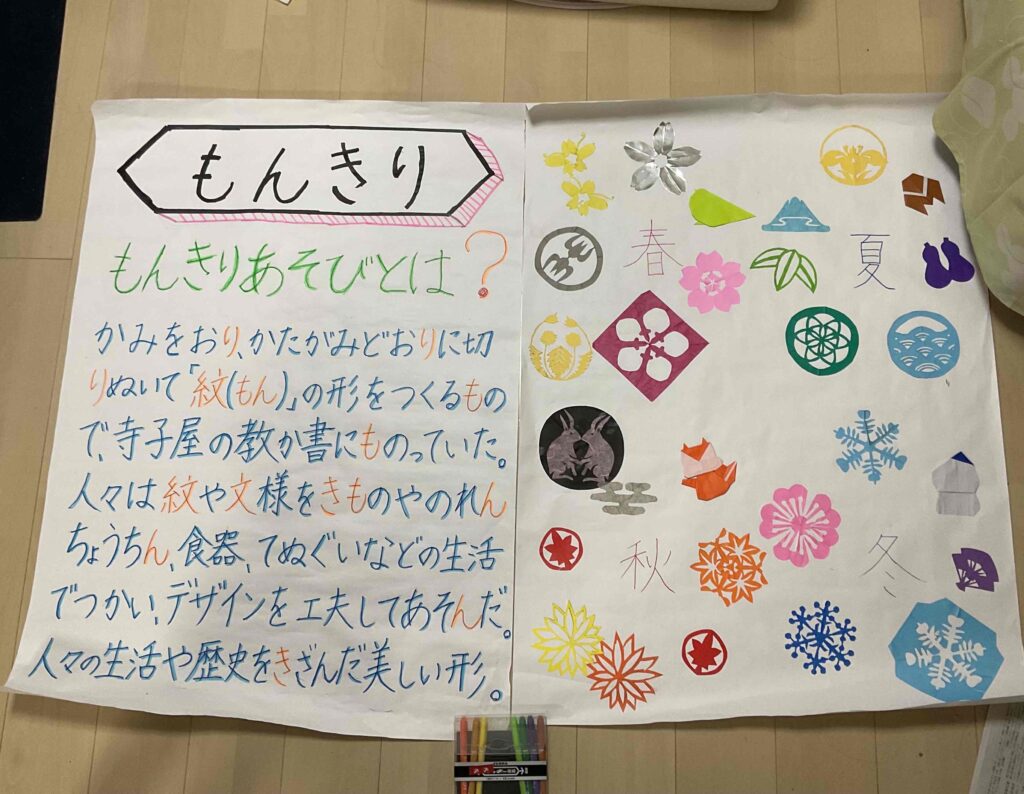 もんきり
もんきりあそびとは?
かみをおり、かたがみどおりに切
りぬいて「紋(もん)」の形をつくるもの
で、寺子屋の教か書にものっていた。
人々は紋や文様をきものやのれん
ちょうちん、食器、てぬぐいなどの生活
でつかい、デザインを工夫してあそんだ。
人々の生活や歴史をきざんだ美しい形。
春
夏
秋
冬